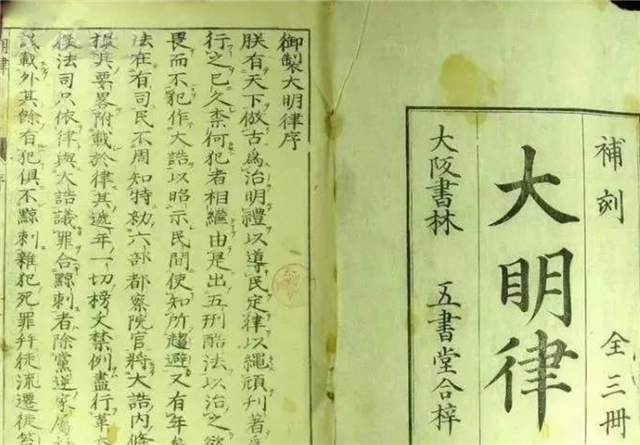 補刻 全三冊
大明律
大阪書林 五書堂合梓
御製大明律序
朕有天下倣古爲治明禮以導民定律以繩頑刋著
行之已久柰何犯者相繼由是出五刑酷法以治之欲
畏而不犯作大誥以昭示民間使知所趨避又有年
法在有司民不周知特勅六部都察院官將大誥內條
撮其要畧附載於律其逓年一切榜文禁例盡行革
後法司只依律與大誥議罪合黥刺者除黨逆家屬
該載外其餘有犯俱不黥刺雜犯死罪幷徒流遷徙笞
明律 序